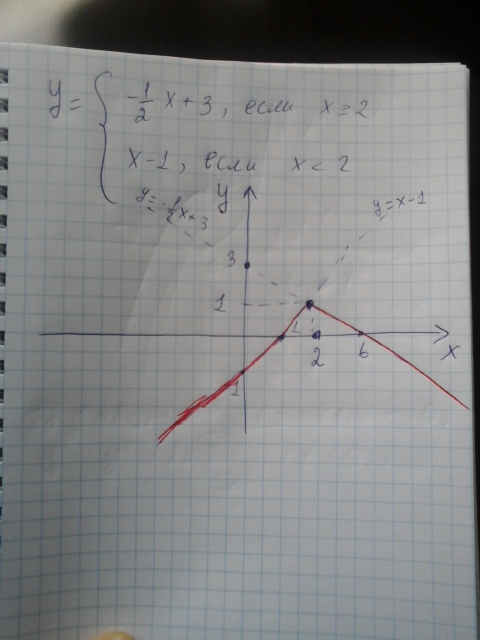 y = { -1/2 x + 3, если x ≥ 2
x - 1, если x < 2
y = -1/2 x + 3
y
y = x - 1
3
1
1
2
6
x
1